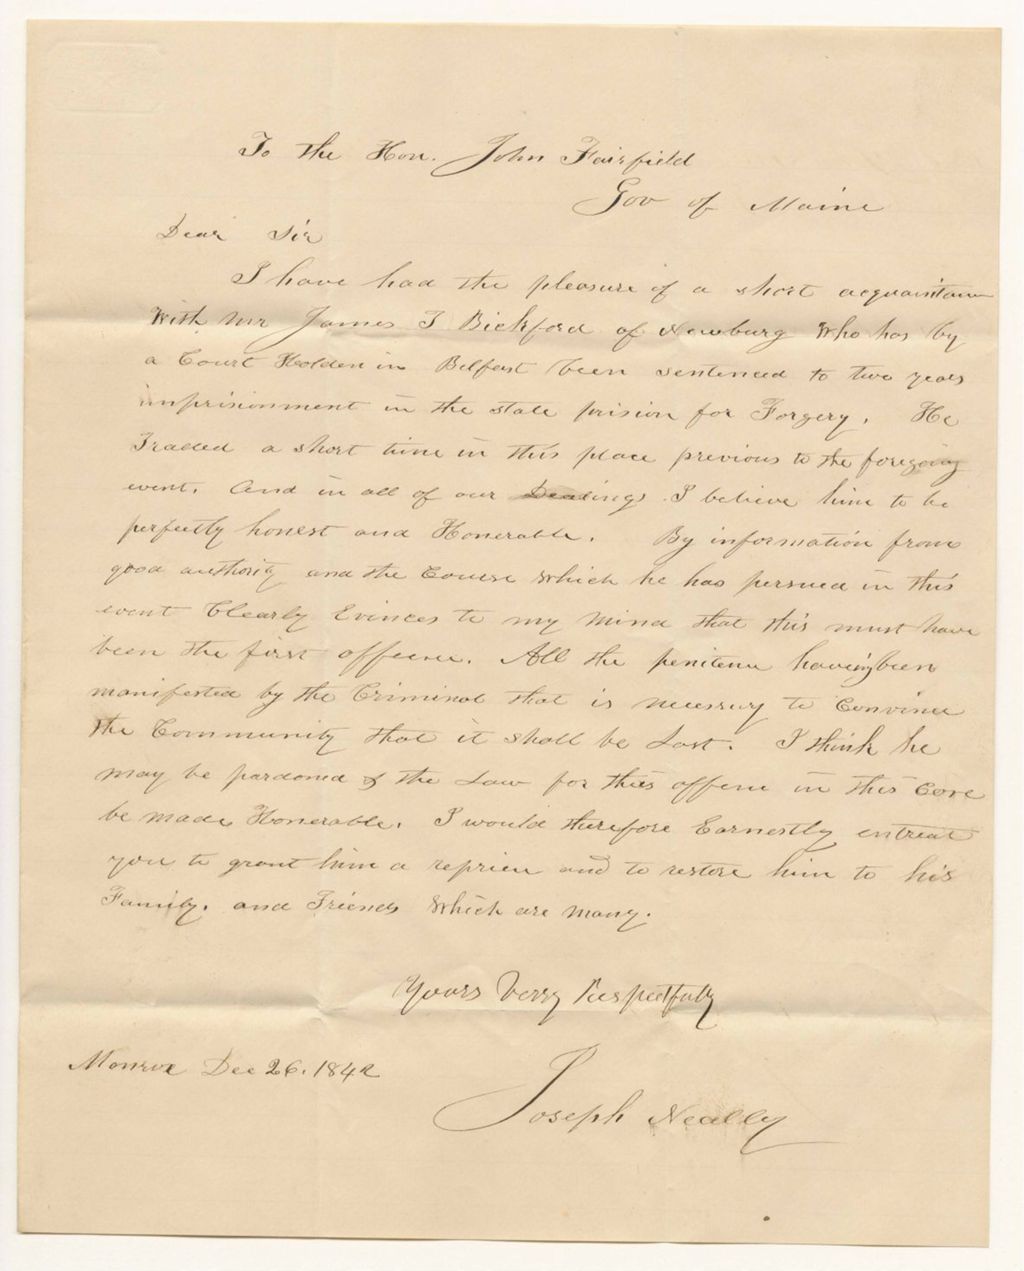 To the Hon. John Fairfield
Gov of Maine
Dear Sir
I have had the pleasure of a short acquaintance
With Mr James T Bickford of Newburg Who has by
a Court Holden in Belfast been sentenced to two years
imprisionment in the state prision for Forgery. He
Traded a short time in this place previous to the foregoing
event. And in all of our Dealings I believe him to be
perfectly honest and Honerable. By information from
good authority and the Course Which he has persued in this
event Clearly Evinces to my Mind that this must have
been the first offence. All the penitence having been
manifested by the Criminal that is necessary to Convince
the Community that it shall be Last. I think he
may be pardoned & the Law for this offence in this Case
be made Honerable. I would therefore Earnestly entreat
you to grant him a repriev and to restore him to his
Family. and Friends Which are many.
Yours Verry Respectfuly
Monroe Dec 26. 1842
Joseph Neally